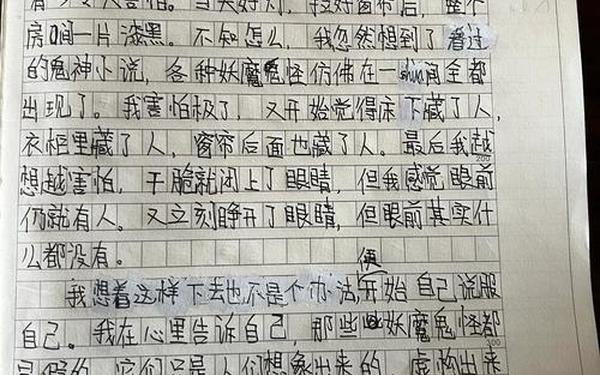 害怕。当关好灯，拉好窗帘后，整个
房间一片漆黑。不知怎么，我忽然想到了看过
的鬼神小说，各种妖魔鬼怪仿佛在一shuà间全都
出现了。我害怕极了，又开始觉得床下藏了人，
衣柜里藏了人，窗帘后面也藏了人。最后我越
200
想越害怕，干脆就闭上了眼睛，但我感觉眼前
仍就有人。又立刻睁开了眼睛，但眼前其实什
么都没有。
便
我想着这样下去也不是个办法，开始自己说服
自己。我在心里告诉自己，那些妖魔鬼怪都
300
是假的，它们只是人们想象出来的，虚构出来